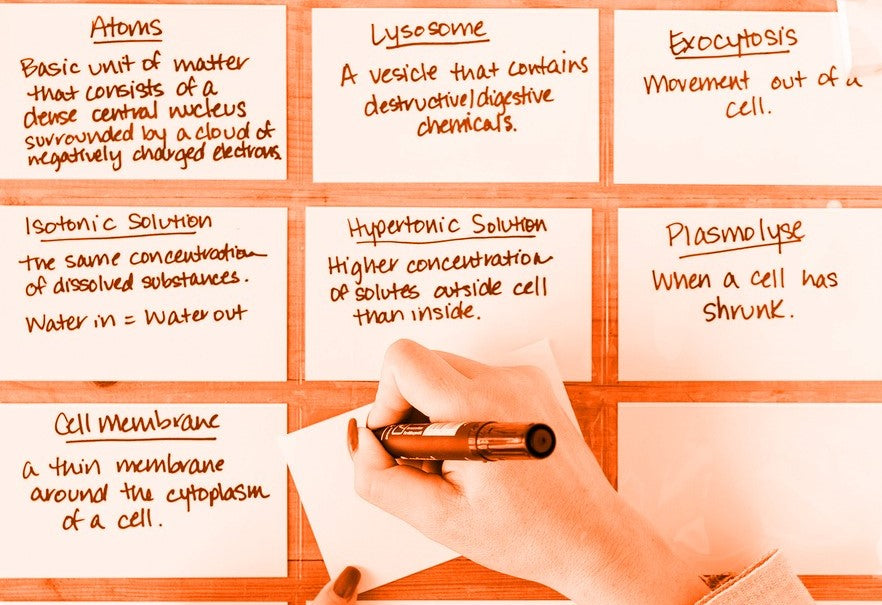 Atoms
Basic unit of matter
that consists of a
dense central nucleus
surrounded by a cloud of
negatively charged electrons.
Lysosome
A vesicle that contains
destructive/digestive
chemicals.
Exocytosis
Movement out of a
cell.
Isotonic Solution
The same concentration
of dissolved substances.
Water in = Water out
Hypertonic Solution
Higher concentration
of solutes outside cell
than inside.
Plasmolyse
When a cell has
shrunk.
Cell membrane
a thin membrane
around the cytoplasm
of a cell.